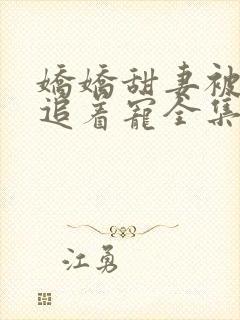 嬌嬌甜妻被
追着寵全集
江勇